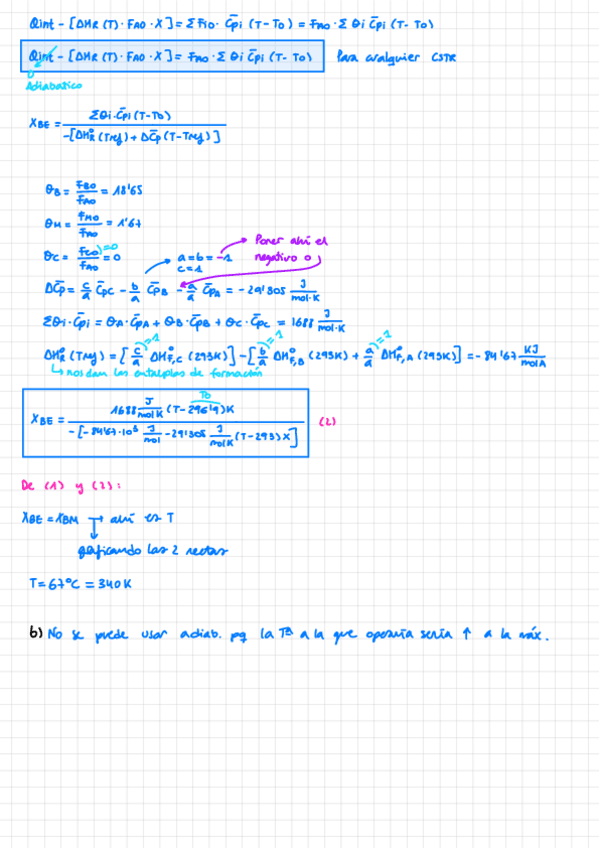 Qint - [ΔHR (T) · FA0 · X] = Σ Fi0 · C̄pi (T-T0) = FA0 · Σ θi C̄pi (T-T0)
Qint - [ΔHR (T) · FA0 · X] = FA0 · Σ θi C̄pi (T-T0) Para cualquier CSTR
0
Adiabático
XBE = Σθi·C̄pi (T-T0) / -[ΔH°R (Tref) + ΔC̄p (T-Tref)]
θB = FB0/FA0 = 18'65
θM = FM0/FA0 = 1'67
θC = FC0/FA0 = 0 =0
a=b=-1
c=1
Poner ahí el
negativo o
ΔC̄p = c/a C̄pC - b/a C̄pB - a/a C̄pA = -29'305 J/mol·K
Σθi·C̄pi = θA·C̄pA + θB·C̄pB + θC·C̄pC = 1688 J/mol·K
ΔH°R (Tref) = [c/a ΔH°F,C (293K)] - [b/a ΔH°F,B (293K) + a/a ΔH°F,A (293K)] = -84'67 KJ/molA
=1 =1 =1
nos dan las entalpías de formación
XBE = 1688 J/molK (T-296'9)K / -[-84'67·10³ J/mol - 29'305 J/molK (T-293)K] (2)
T0
De (1) y (2):
XBE = XBM → ahí es T
graficando las 2 rectas
T = 67°C = 340K
b) No se puede usar adiab. pq la Tª a la que operaría sería ↑ a la máx.